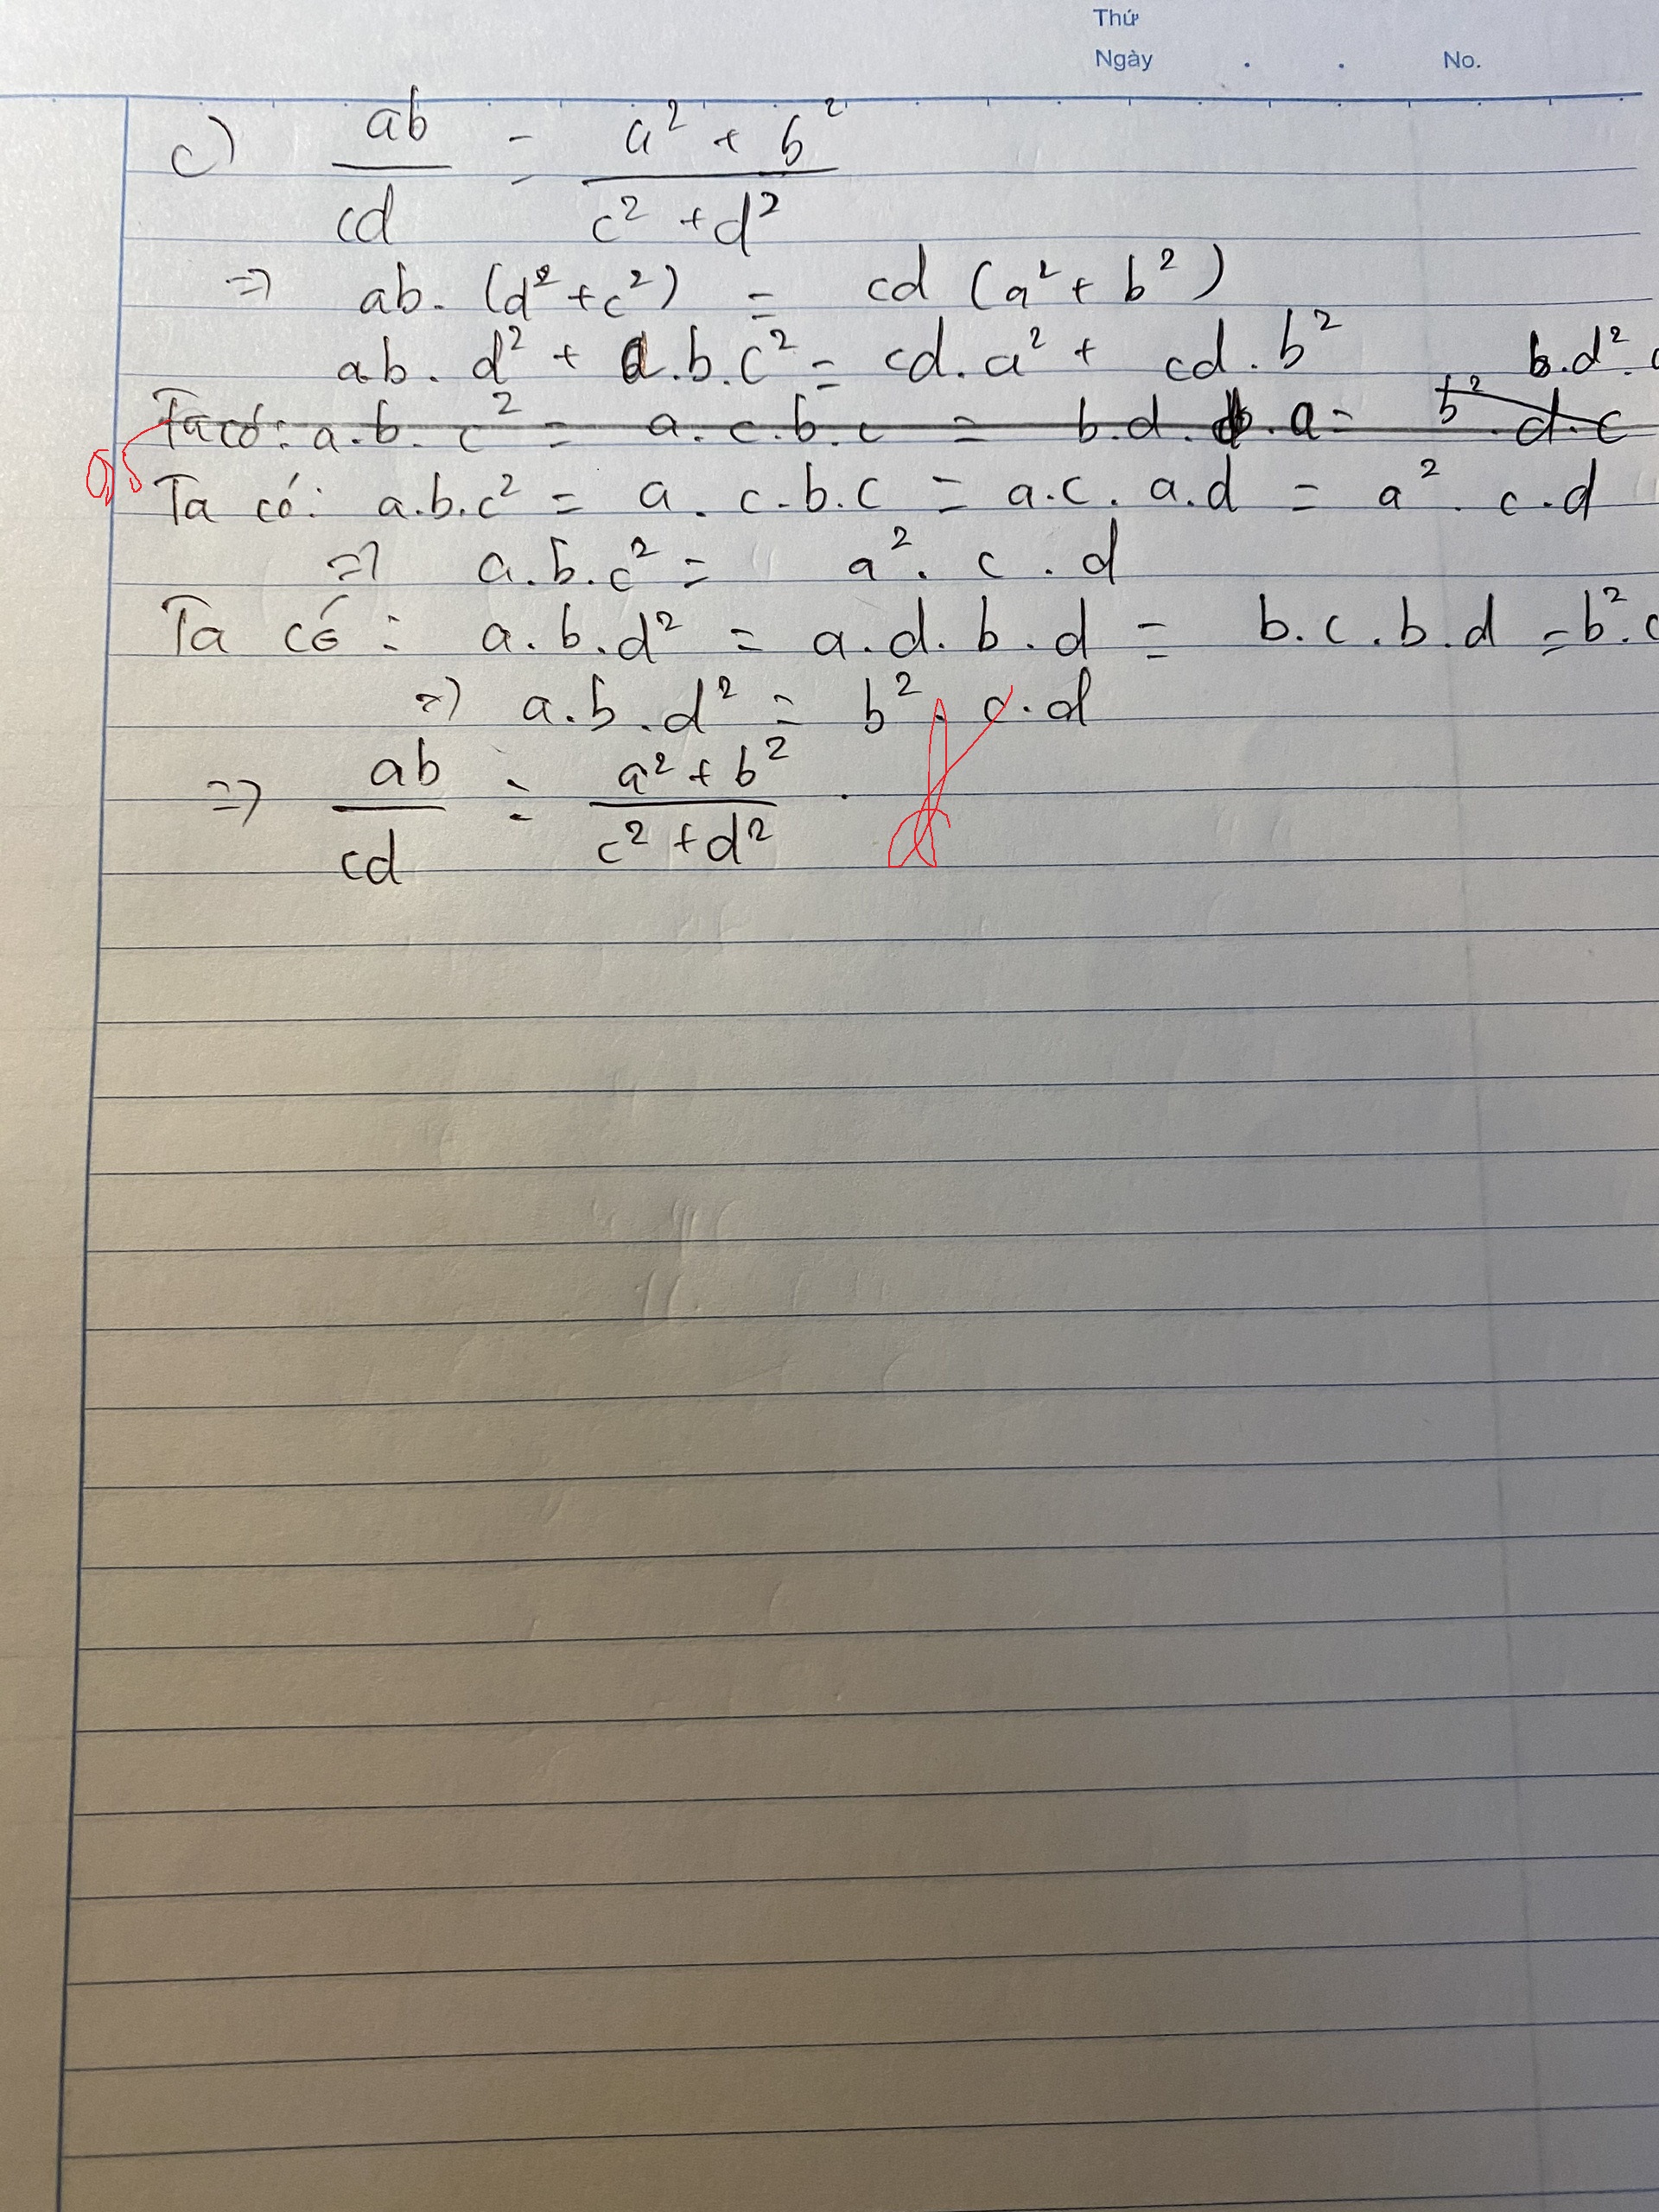 Thứ
Ngày . . No.
c) ab/cd = a² + b²/c² + d²
=> ab. (d² + c²) = cd (a² + b²)
ab. d² + a.b.c² = cd.a² + cd.b² b.d².
Ta có: a.b.c² = a.c.b.c = b.d.b.a = b².d.c
0,5
Ta có: a.b.c² = a.c.b.c = a.c.a.d = a².c.d
=> a.b.c² = a².c.d
Ta có: a.b.d² = a.d.b.d = b.c.b.d = b².c
=> a.b.d² = b².c.d
=> ab/cd = a² + b²/c² + d².